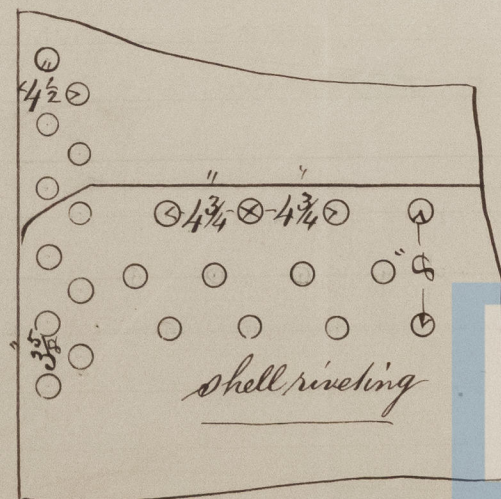 4 1/2"
4 3/4" 4 3/4"
8"
3 5/8"
shell riveting